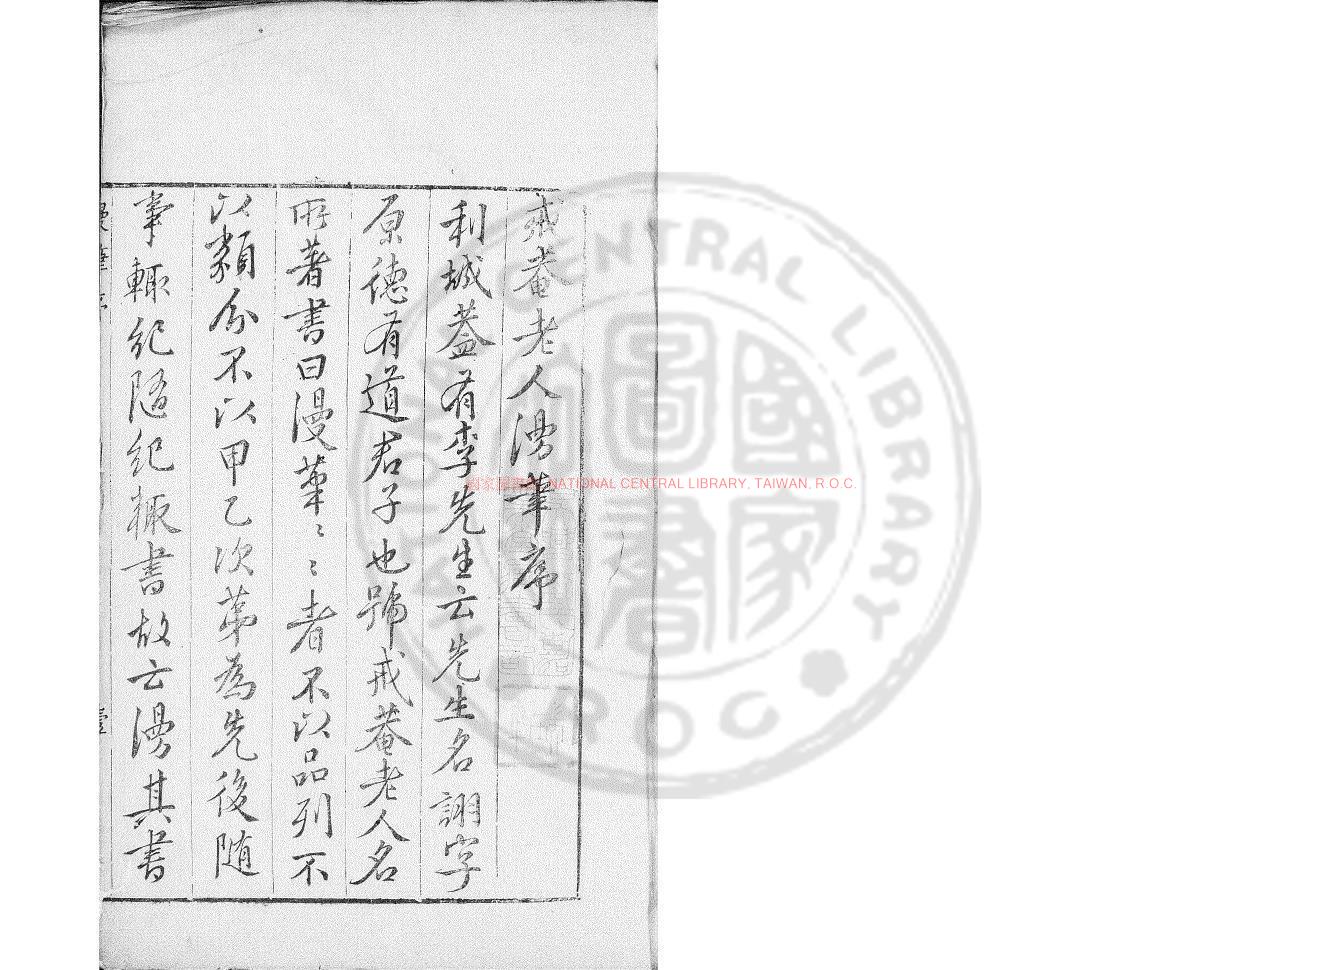 戒菴老人漫筆序
利城蓋有李先生云先生名詡字
原德有道君子也號戒菴老人名
所著書曰漫筆〻〻者不以品列不
以類分不以甲乙次第為先後隨
事輒紀隨紀輒書故云漫其書
漫筆序
壹
國家圖書館 NATIONAL CENTRAL LIBRARY, TAIWAN, R.O.C.
CENTRAL LIBRARY
R.O.C.
國家圖書